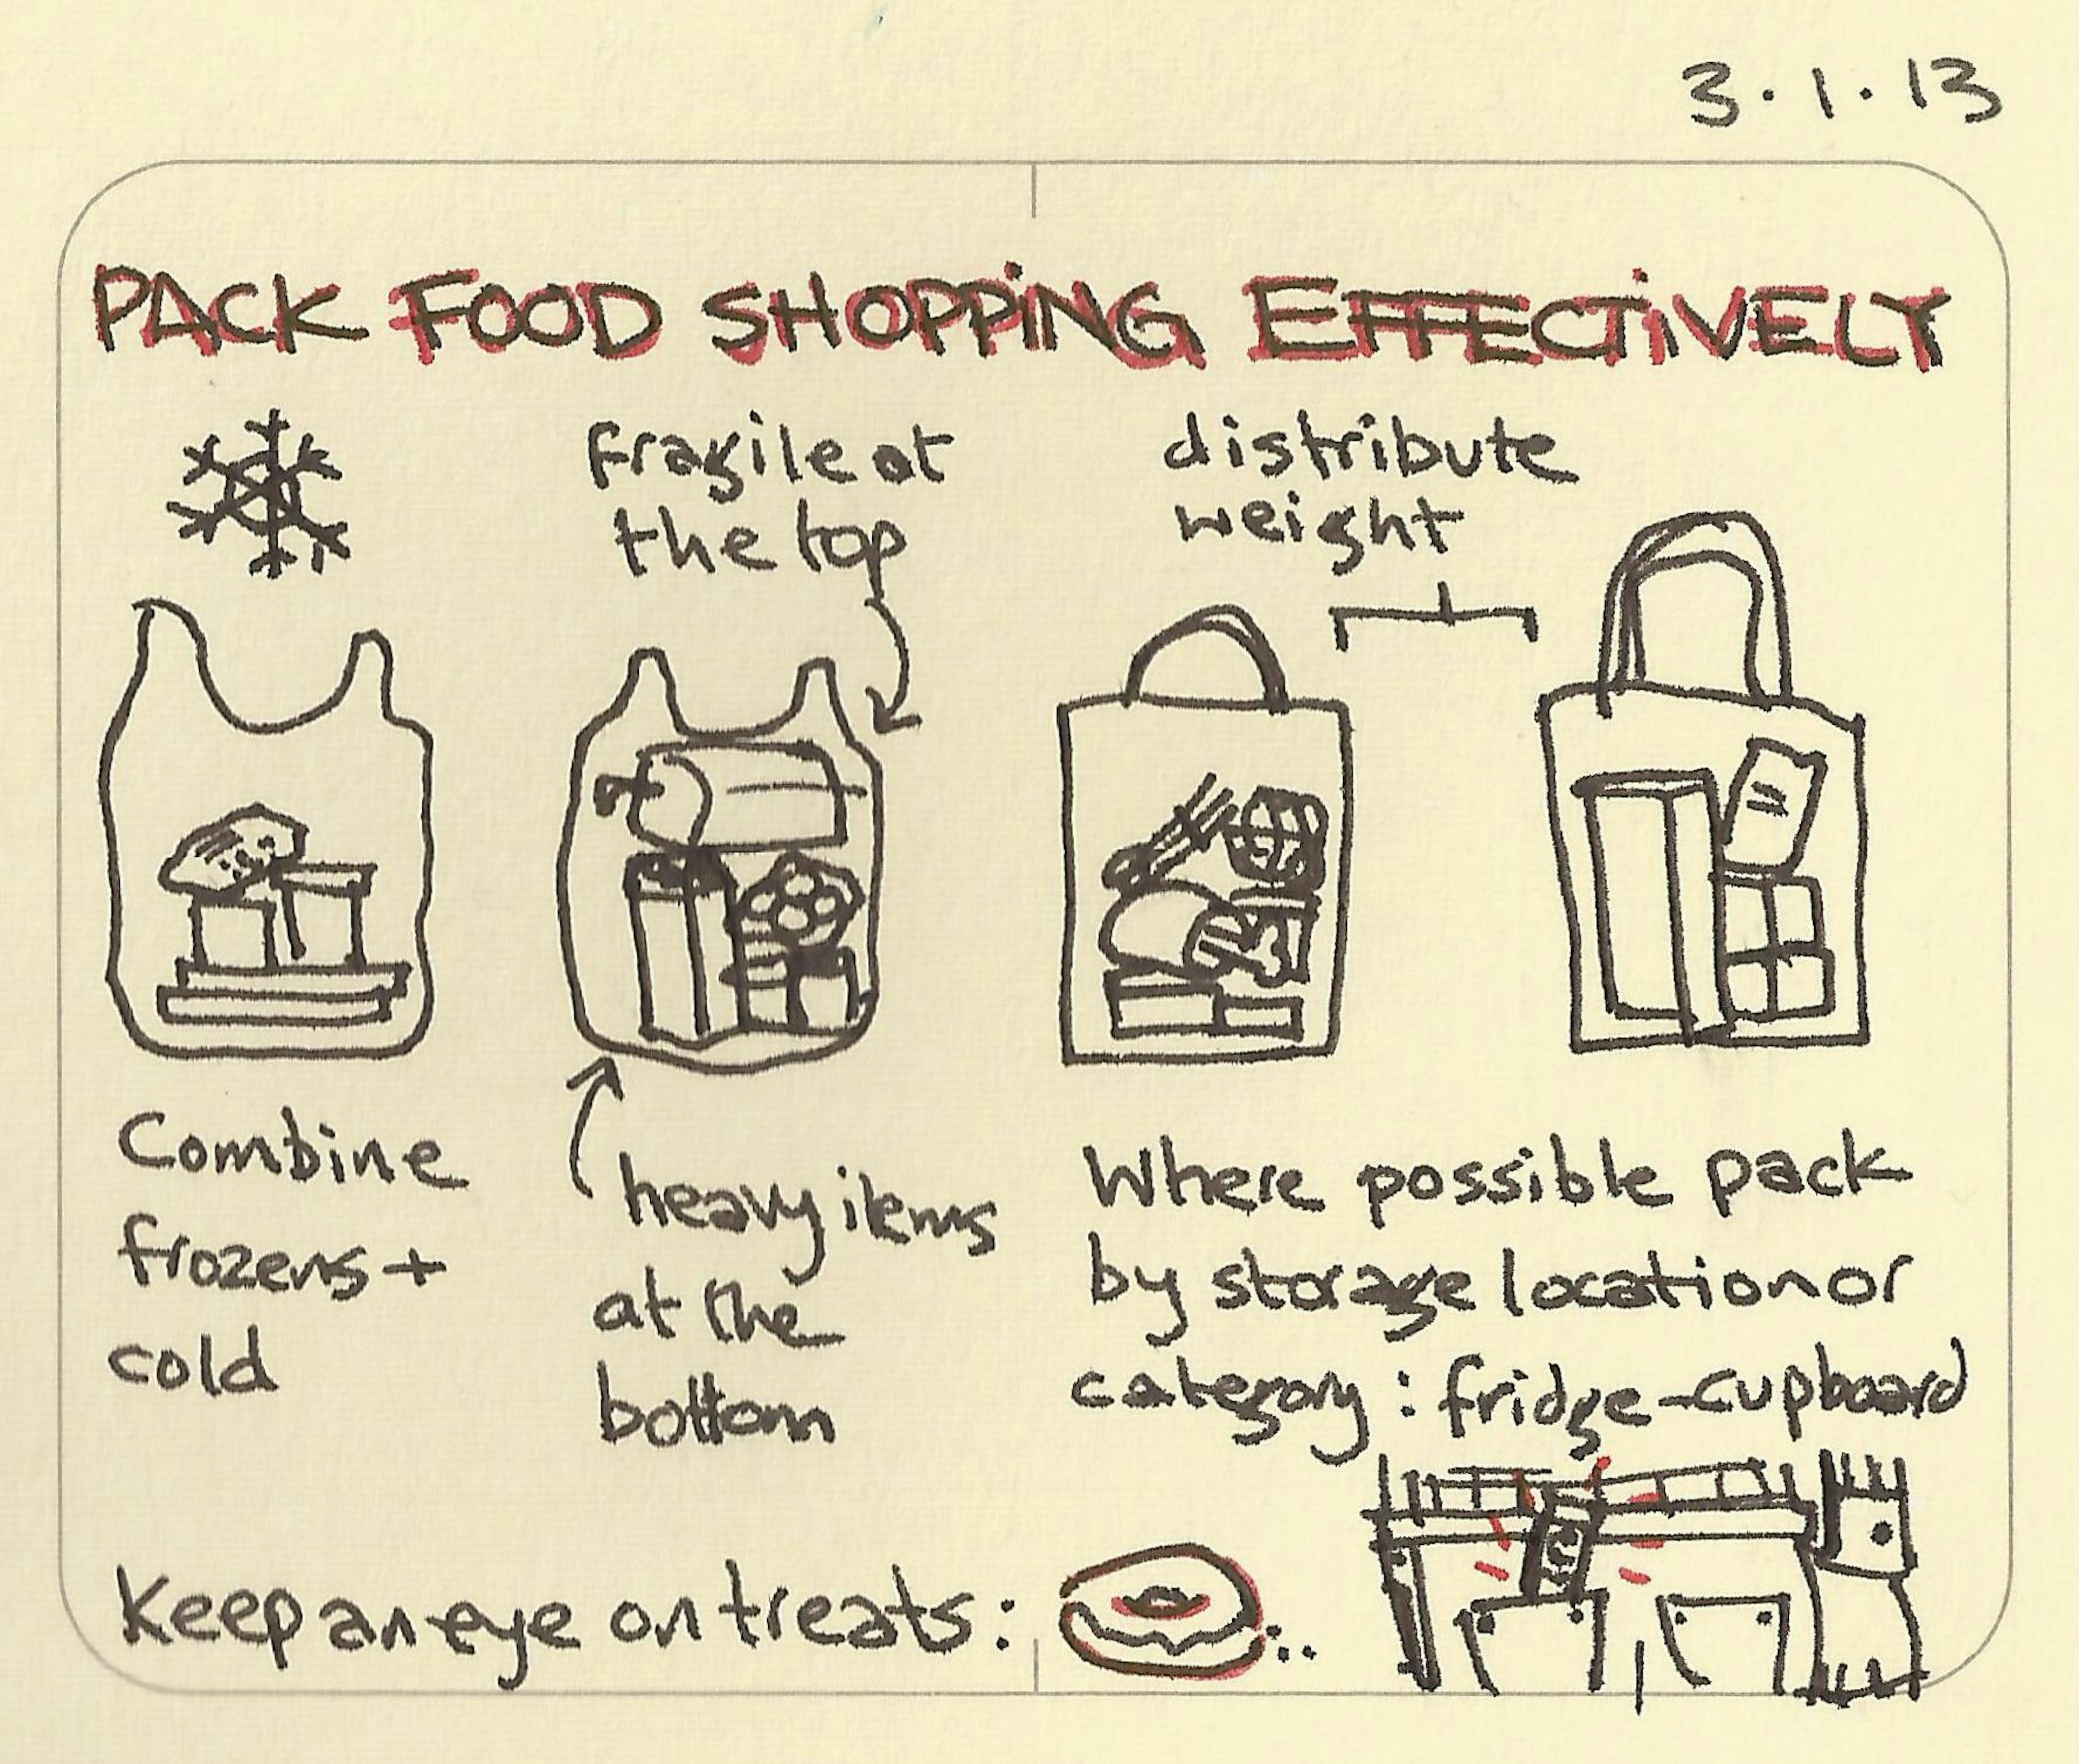 3.1.13
PACK FOOD SHOPPING EFFECTIVELY
fragile at
the top
distribute
weight
Combine
frozens +
cold
heavy items
at the
bottom
Where possible pack
by storage location or
category: fridge-cupboard
Keep an eye on treats: